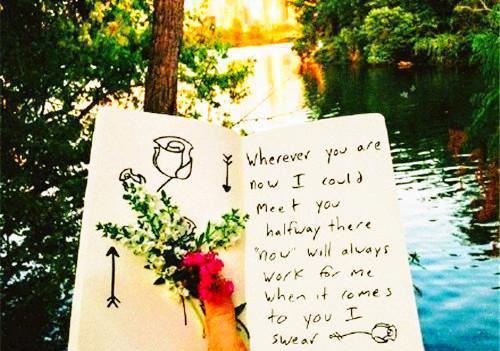 Wherever you are
now I could
meet you
halfway there
"now" will always
work for me
when it comes
to you I
swear